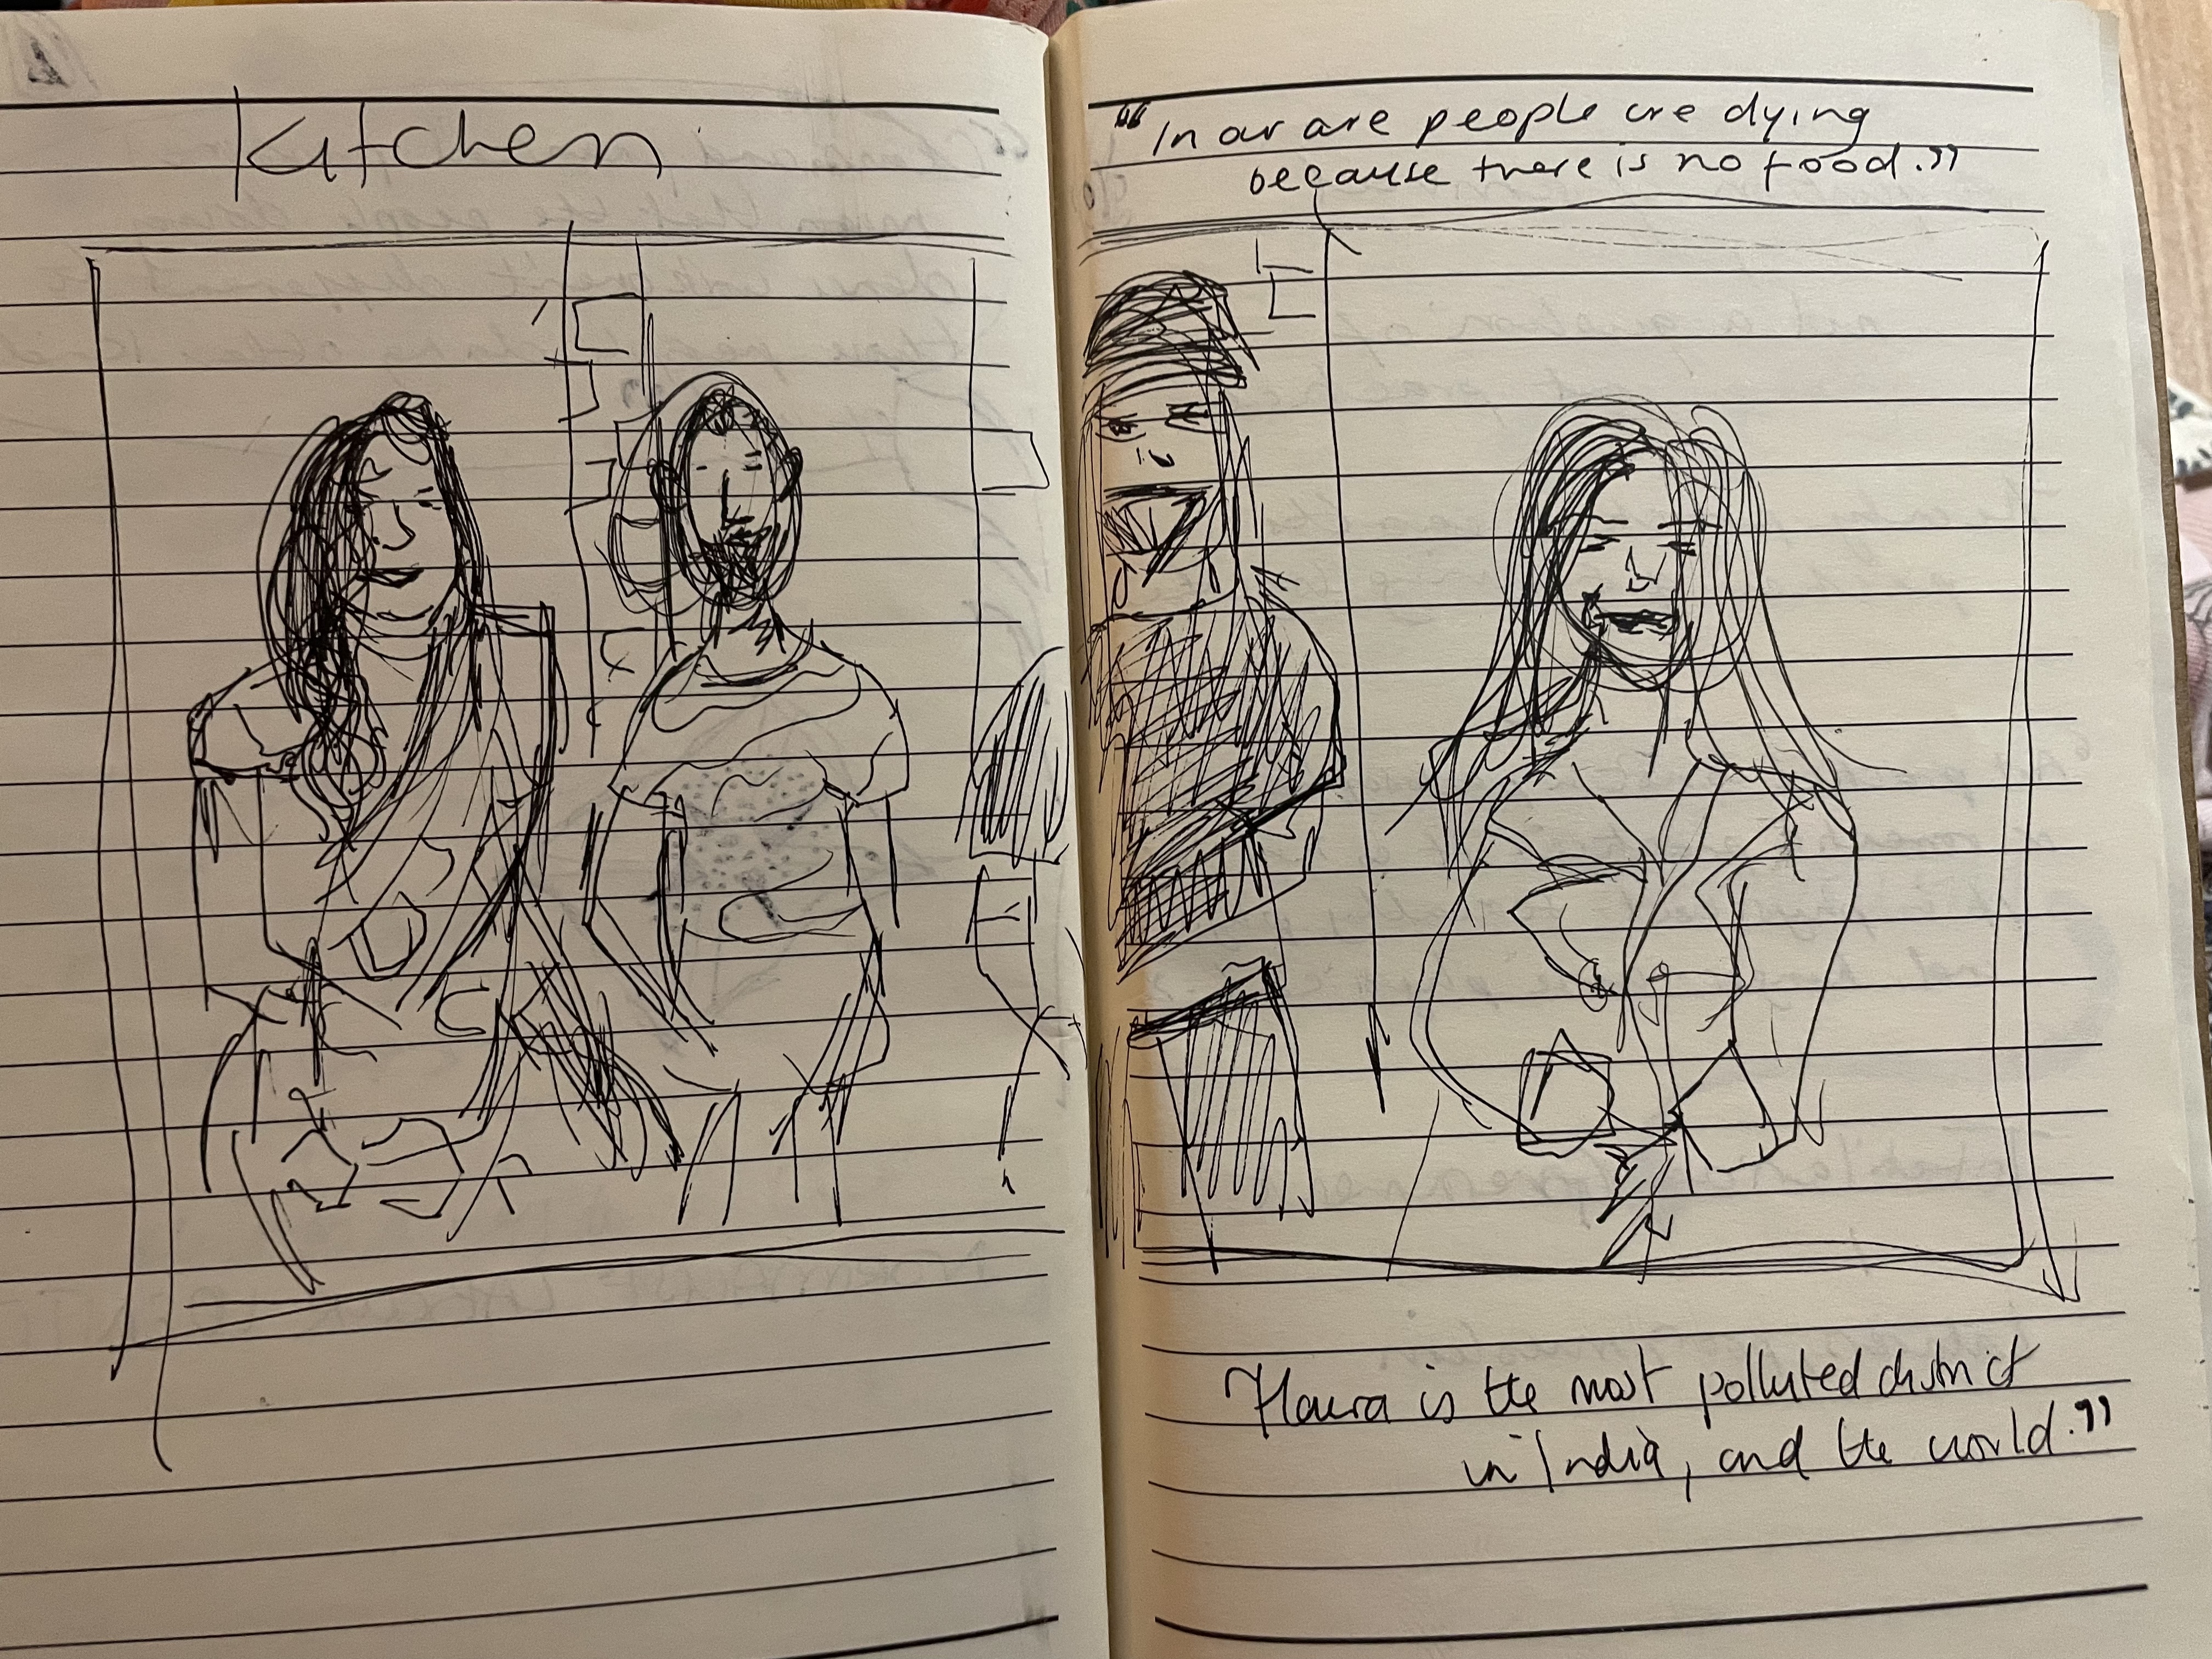 Kitchen
"In our are people are dying
because there is no food."
Haura is the most polluted district
in India, and the world."